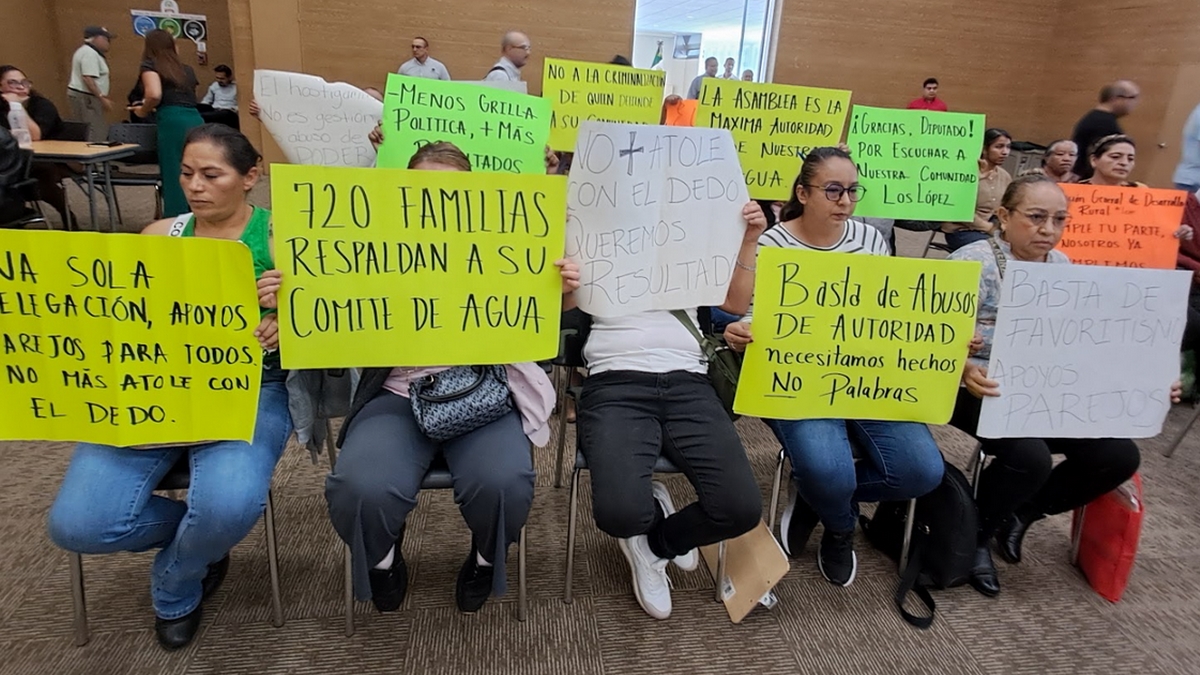 El hostigami
No es gestion
abuso de
PODER
-MENOS GRILLA
POLITICA, + MÁS
NO A LA CRIMINALIZACIÓN
DE QUIEN DEFIENDE
A SU
LA ASAMBLEA ES LA
MAXIMA AUTORIDAD
DE NUESTRA
AGUA.
¡GRACIAS, DIPUTADO!
POR ESCUCHAR A
NUESTRA COMUNIDAD
LOS LÓPEZ
General de Desarrollo
Rural
MPLE TU PARTE,
NOSOTROS YA
UMPLIMOS
NA SOLA
ELEGACIÓN, APOYOS
AREJOS PARA TODOS.
NO MÁS ATOLE CON
EL DEDO.
720 FAMILIAS
RESPALDAN A SU
COMITE DE AGUA
NO + ATOLE
CON EL DEDO
QUEREMOS
RESULTAD
Basta de Abusos
DE AUTORIDAD
necesitamos hechos
NO Palabras
BASTA DE
FAVORITISM
APOYOS
PAREJOS